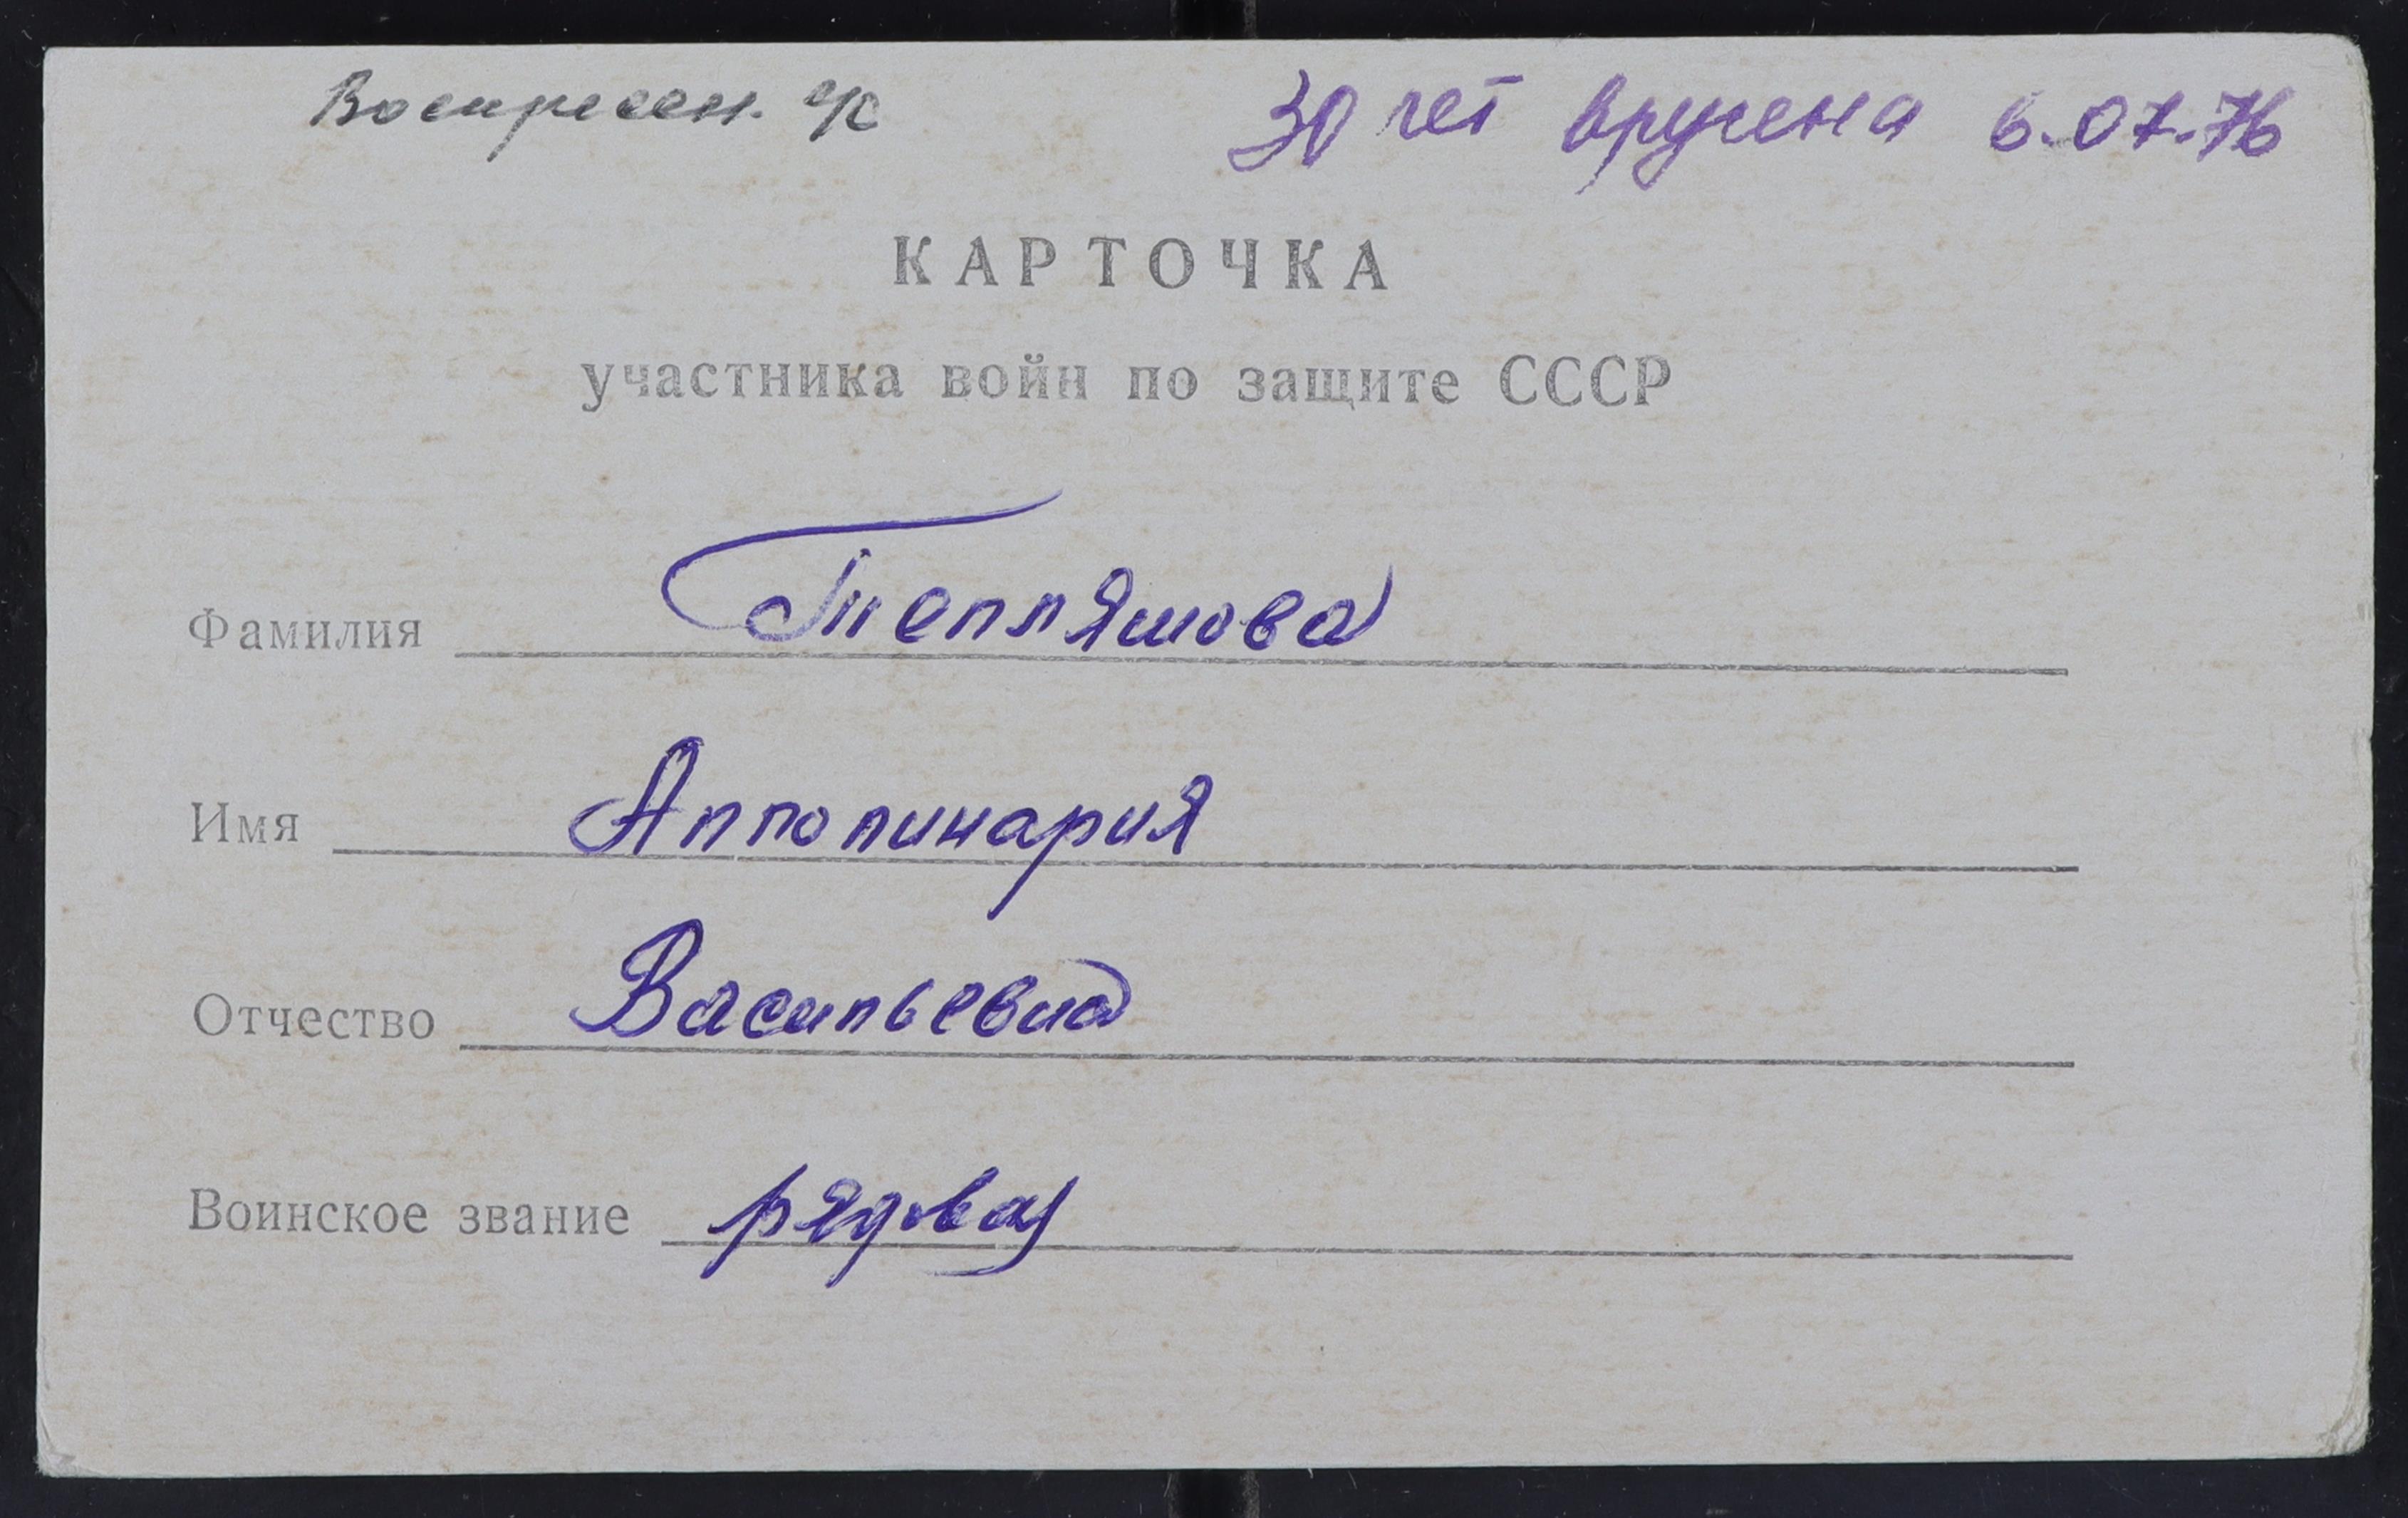 Воскресен. с/с 30 лет вручена 6.07.76
КАРТОЧКА
участника войн по защите СССР
Фамилия Тепляшова
Имя Апполинария
Отчество Васильевна
Воинское звание рядовая